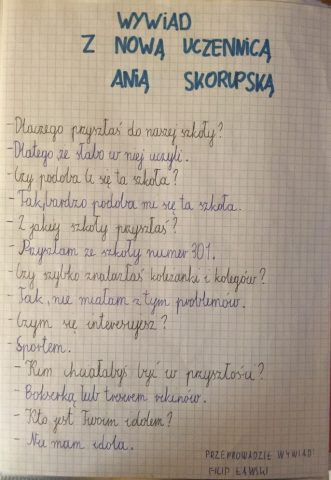 WYWIAD
Z NOWĄ UCZENNICĄ
ANIĄ SKORUPSKĄ
- Dlaczego przyszłaś do naszej szkoły?
- Dlatego że słabo w niej uczyli.
- Czy podoba Ci się ta szkoła?
- Tak, bardzo podoba mi się ta szkoła.
- Z jakiej szkoły przyszłaś?
- Przyszłam ze szkoły numer 301.
- Czy szybko znalazłaś koleżanki i kolegów?
- Tak, nie miałam z tym problemów.
- Czym się interesujesz?
- Sportem.
- Kim chciałabyś być w przyszłości?
- Bokserką lub trenerem rekinów.
- Kto jest Twoim idolem?
- Nie mam idola.
PRZEPROWADZIŁ WYWIAD:
FILIP ŁAWSKI